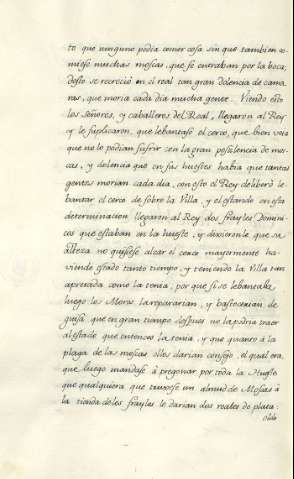 to que ninguno podia comer cosa sin que tambien co-
miese muchas moscas, que se entraban por la boca,
desto se recreció en el real tan gran dolencia de cama-
ras, que moria cada dia mucha gente. Viendo esto
los Señores, y caballeros del Real, llegaron al Rey
y le suplicaron, que lebantase el cerco, que bien veia
que no lo podian sufrir con la gran pestilencia de mos-
cas, y dolencia que en sus huestes habia que tantas
gentes morian cada dia, con esto el Rey deliberó le-
bantar el cerco de sobre la Villa, y estando en esta
determinacion llegaron al Rey dos frayles Domini-
cos que estaban en la hueste, y dixieronle que su
alteza no quisiese alzar el cerco mayormente ha-
viendo estado tanto tiempo, y teniendo la Villa tan
apretada como la tenia, por que si se lebantaba,
luego los Moros la repararian, y bastecerian de
guisa que en gran tiempo despues no la podria traer
al estado que entonces la tenia, y que quanto á la
plaga de las moscas ellos darian consejo, el qual era,
que luego mandase á pregonar por toda la Hueste
que qualquiera que truxese un almud de Moscas á
la tienda de los frayles le darian dos reales de plata: